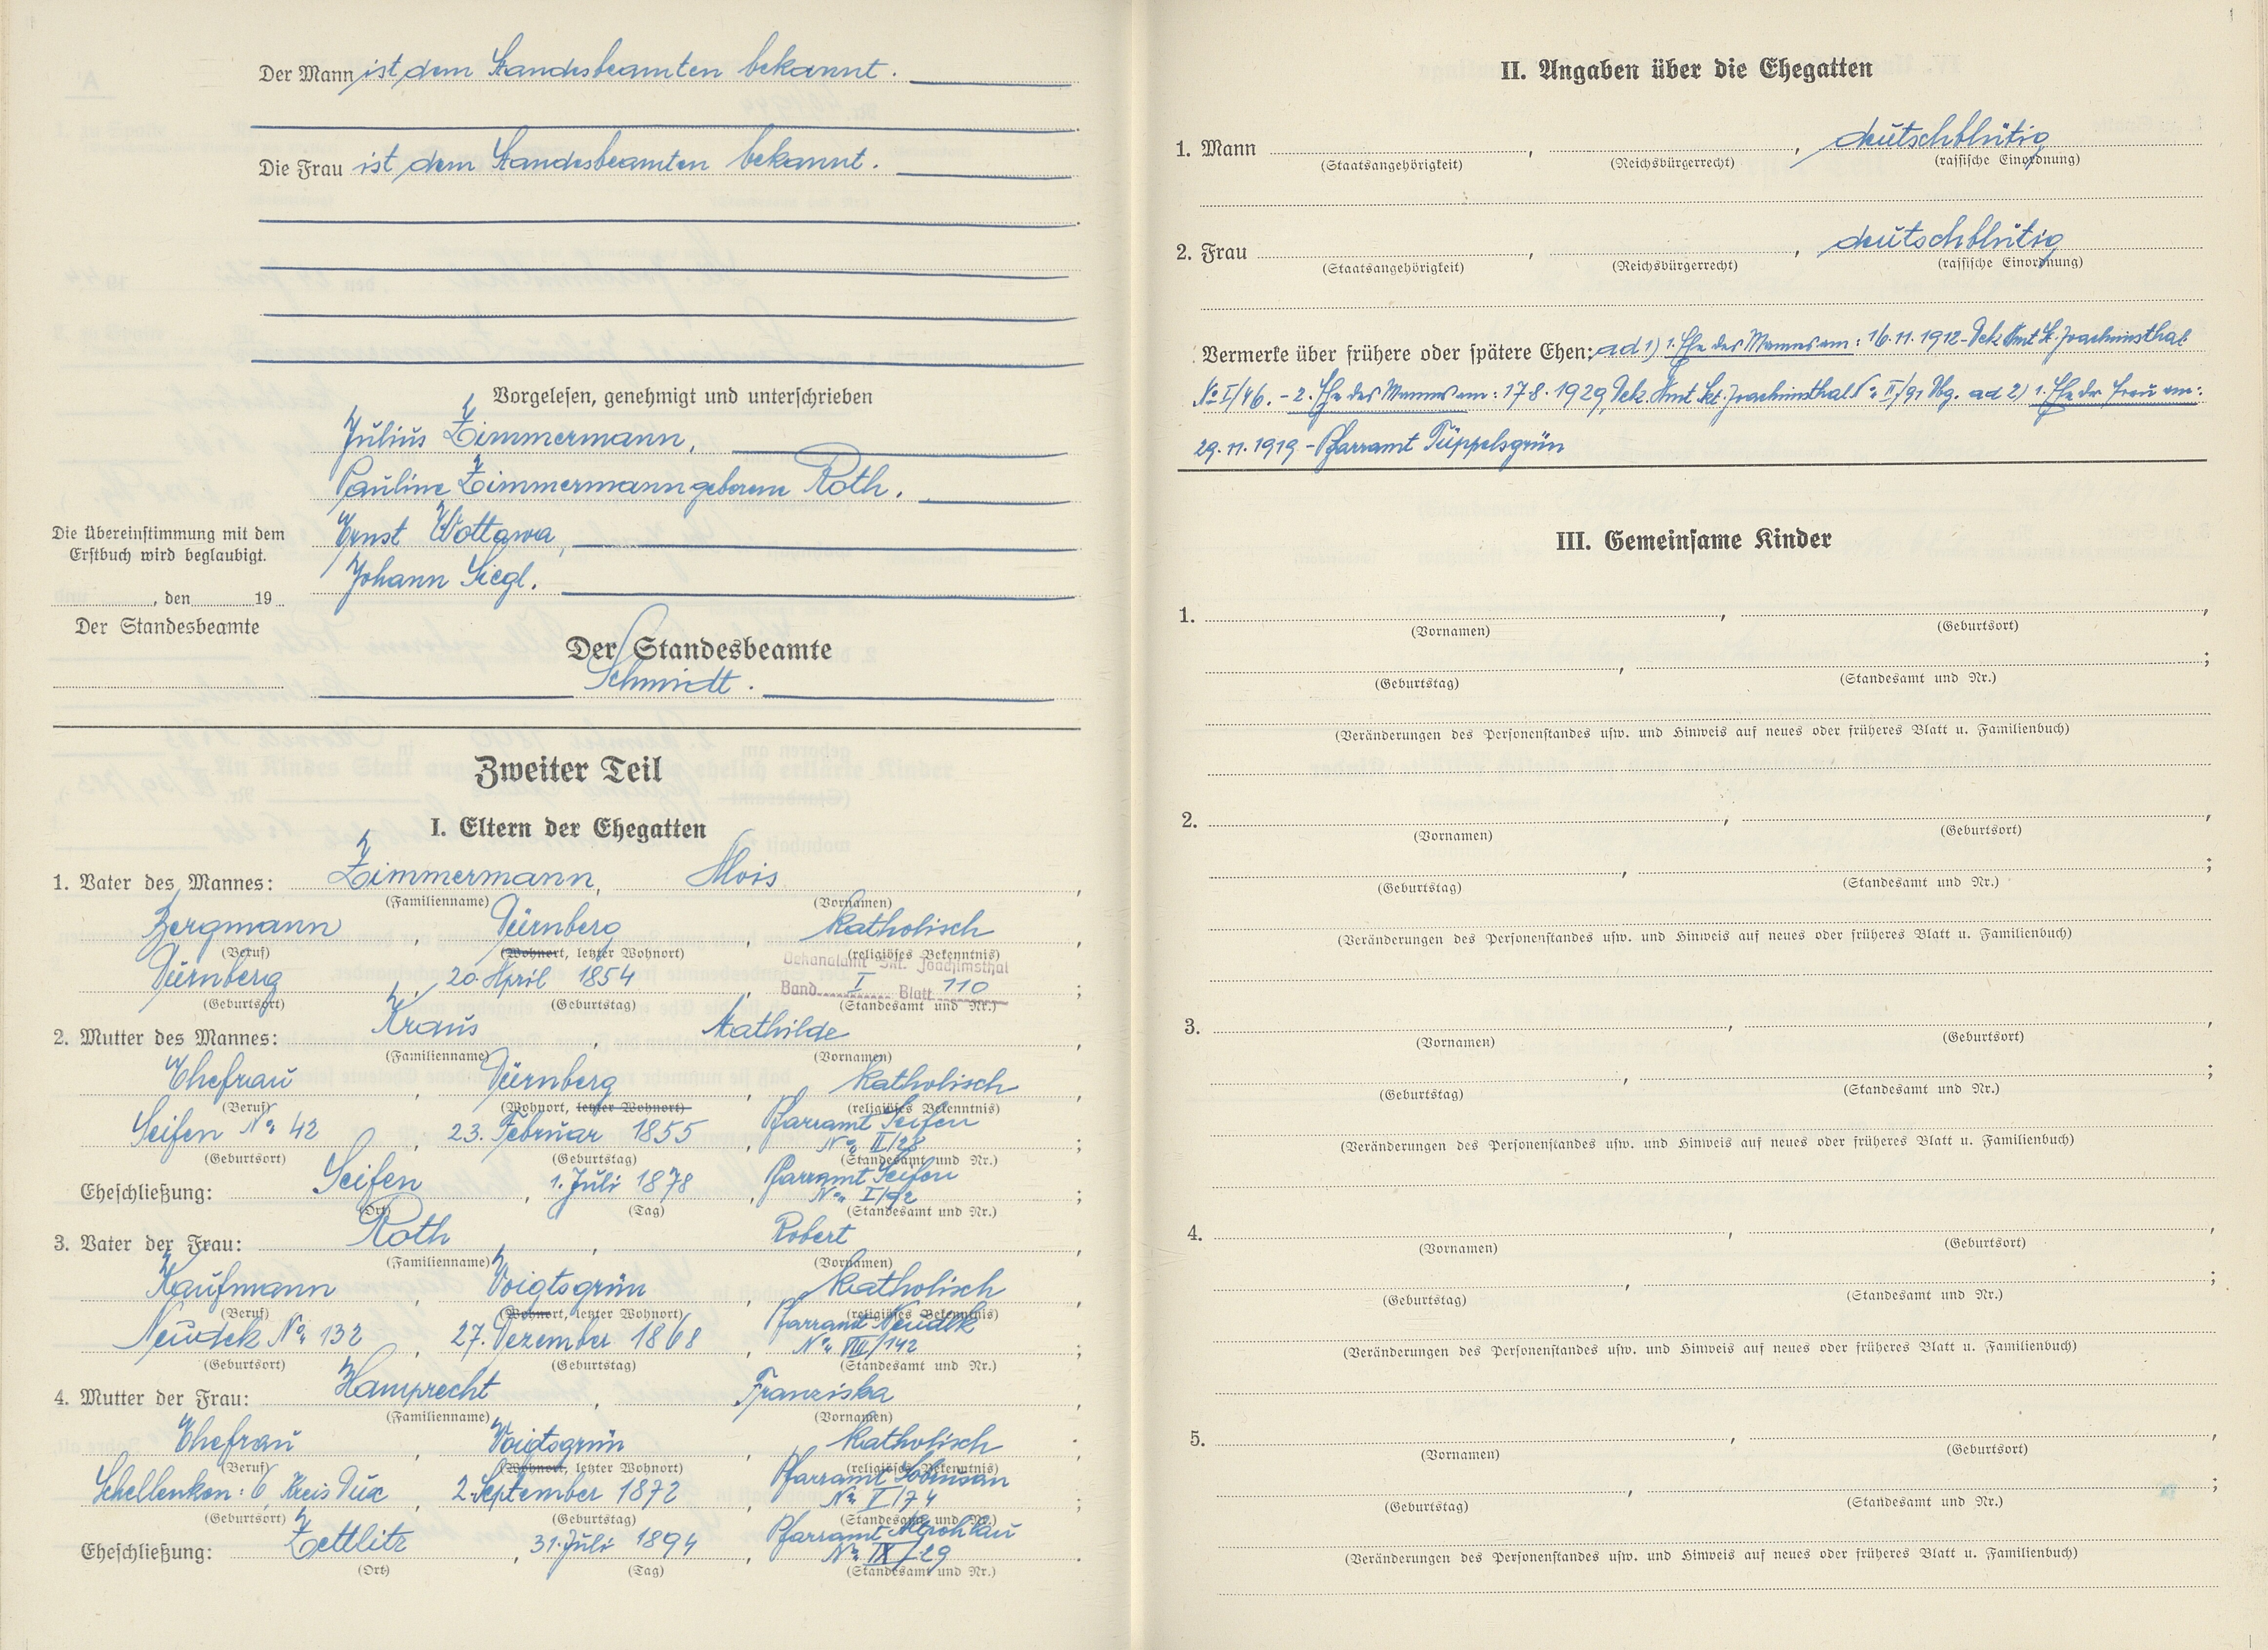 Der Mann ist dem Standesbeamten bekannt.
Die Frau ist dem Standesbeamten bekannt.
Vorgelesen, genehmigt und unterschrieben
Julius Zimmermann,
Pauline Zimmermann geborene Roth.
Ernst Wottawa,
Johann Siegl.
Die Übereinstimmung mit dem
Erstbuch wird beglaubigt.
, den 19
Der Standesbeamte
Der Standesbeamte
Schmidt.
Zweiter Teil
I. Eltern der Ehegatten
1. Vater des Mannes: Zimmermann, Alois,
(Familienname) (Vornamen)
Bergmann, Dürnberg, katholisch,
(Beruf) (Wohnort, letzter Wohnort) (religiöses Bekenntnis)
Dekanalamt Skt. Joachimsthal
Dürnberg, 20. April 1854, Band I Blatt 110;
(Geburtsort) (Geburtstag) (Standesamt und Nr.)
2. Mutter des Mannes: Kraus, Mathilde,
(Familienname) (Vornamen)
Ehefrau, Dürnberg, katholisch,
(Beruf) (Wohnort, letzter Wohnort) (religiöses Bekenntnis)
Seifen No. 42, 23. Februar 1855, Pfarramt Seifen
No. II/28;
(Geburtsort) (Geburtstag) (Standesamt und Nr.)
Eheschließung: Seifen, 1. Juli 1878, Pfarramt Seifen
No. I/92;
(Ort) (Tag) (Standesamt und Nr.)
3. Vater der Frau: Roth, Robert,
(Familienname) (Vornamen)
Kaufmann, Voigtsgrün, katholisch,
(Beruf) (Wohnort, letzter Wohnort) (religiöses Bekenntnis)
Neudek No. 132, 27. Dezember 1868, Pfarramt Neudek
No. VIII/142;
(Geburtsort) (Geburtstag) (Standesamt und Nr.)
4. Mutter der Frau: Hamprecht, Franziska,
(Familienname) (Vornamen)
Ehefrau, Voigtsgrün, katholisch.
(Beruf) (Wohnort, letzter Wohnort) (religiöses Bekenntnis)
Schellenken: 6, Kreis Dux, 2. September 1872, Pfarramt Sobrusan
No. V/74;
(Geburtsort) (Geburtstag) (Standesamt und Nr.)
Eheschließung: Zettlitz, 31. Juli 1894, Pfarramt Altrohlau
No. IX/29.
(Ort) (Tag) (Standesamt und Nr.)
II. Angaben über die Ehegatten
1. Mann , , deutschblütig
(Staatsangehörigkeit) (Reichsbürgerrecht) (rassische Einordnung)
2. Frau , , deutschblütig
(Staatsangehörigkeit) (Reichsbürgerrecht) (rassische Einordnung)
Vermerke über frühere oder spätere Ehen: ad 1) 1. Ehe des Mannes am: 16.11.1912 - Dek. Amt St. Joachimsthal
No I/46. - 2. Ehe des Mannes am: 17.8.1929, Dek. Amt Skt. Joachimsthal No. II/91 Abg. ad 2) 1. Ehe der Frau am:
29.11.1919 - Pfarramt Tüppelsgrün
III. Gemeinsame Kinder
1. ,
(Vornamen) (Geburtsort)
, ;
(Geburtstag) (Standesamt und Nr.)
(Veränderungen des Personenstandes usw. und Hinweis auf neues oder früheres Blatt u. Familienbuch)
2. , ,
(Vornamen) (Geburtsort)
, ;
(Geburtstag) (Standesamt und Nr.)
(Veränderungen des Personenstandes usw. und Hinweis auf neues oder früheres Blatt u. Familienbuch)
3. , ,
(Vornamen) (Geburtsort)
, ;
(Geburtstag) (Standesamt und Nr.)
(Veränderungen des Personenstandes usw. und Hinweis auf neues oder früheres Blatt u. Familienbuch)
4. , ,
(Vornamen) (Geburtsort)
, ;
(Geburtstag) (Standesamt und Nr.)
(Veränderungen des Personenstandes usw. und Hinweis auf neues oder früheres Blatt u. Familienbuch)
5. , ,
(Vornamen) (Geburtsort)
, ;
(Geburtstag) (Standesamt und Nr.)
(Veränderungen des Personenstandes usw. und Hinweis auf neues oder früheres Blatt u. Familienbuch)